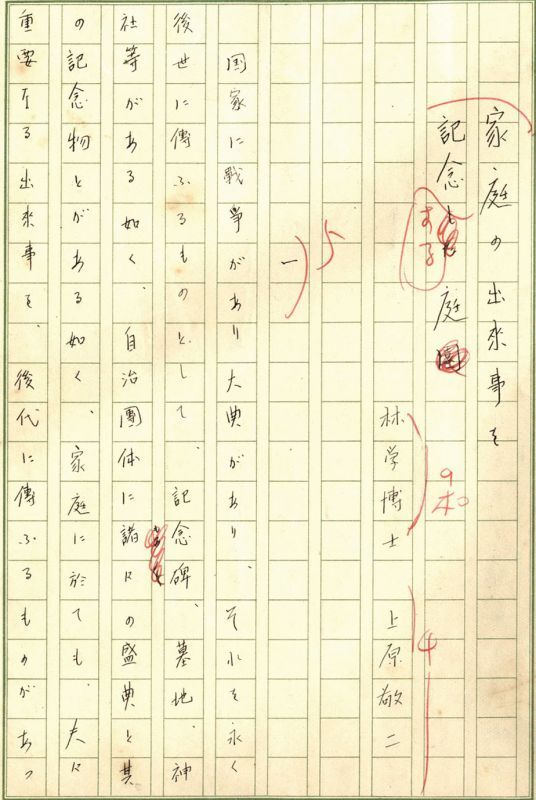 家庭の出來事を
記念する庭
林学博士 上原敬二
5
9ポ
4
一
国家に戰爭があり大典があり、それを永く
後世に傳ふるものとして、記念碑、墓地、神
社等がある如く、自治團体に諸々の盛典と其
の記念物とがある如く、家庭に於ても、夫々
重要なる出來事を、後代に傳ふるものがあつ